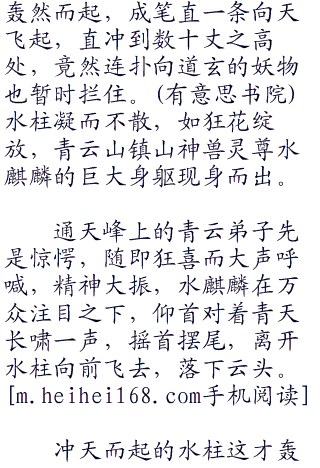 轰然而起，成笔直一条向天
飞起，直冲到数十丈之高
处，竟然连扑向道玄的妖物
也暂时拦住。(有意思书院)
水柱凝而不散，如狂花绽
放，青云山镇山神兽灵尊水
麒麟的巨大身躯现身而出。
通天峰上的青云弟子先
是惊愕，随即狂喜而大声呼
喊，精神大振，水麒麟在万
众注目之下，仰首对着青天
长啸一声，摇首摆尾，离开
水柱向前飞去，落下云头。
[m.heihei168.com手机阅读]
冲天而起的水柱这才轰